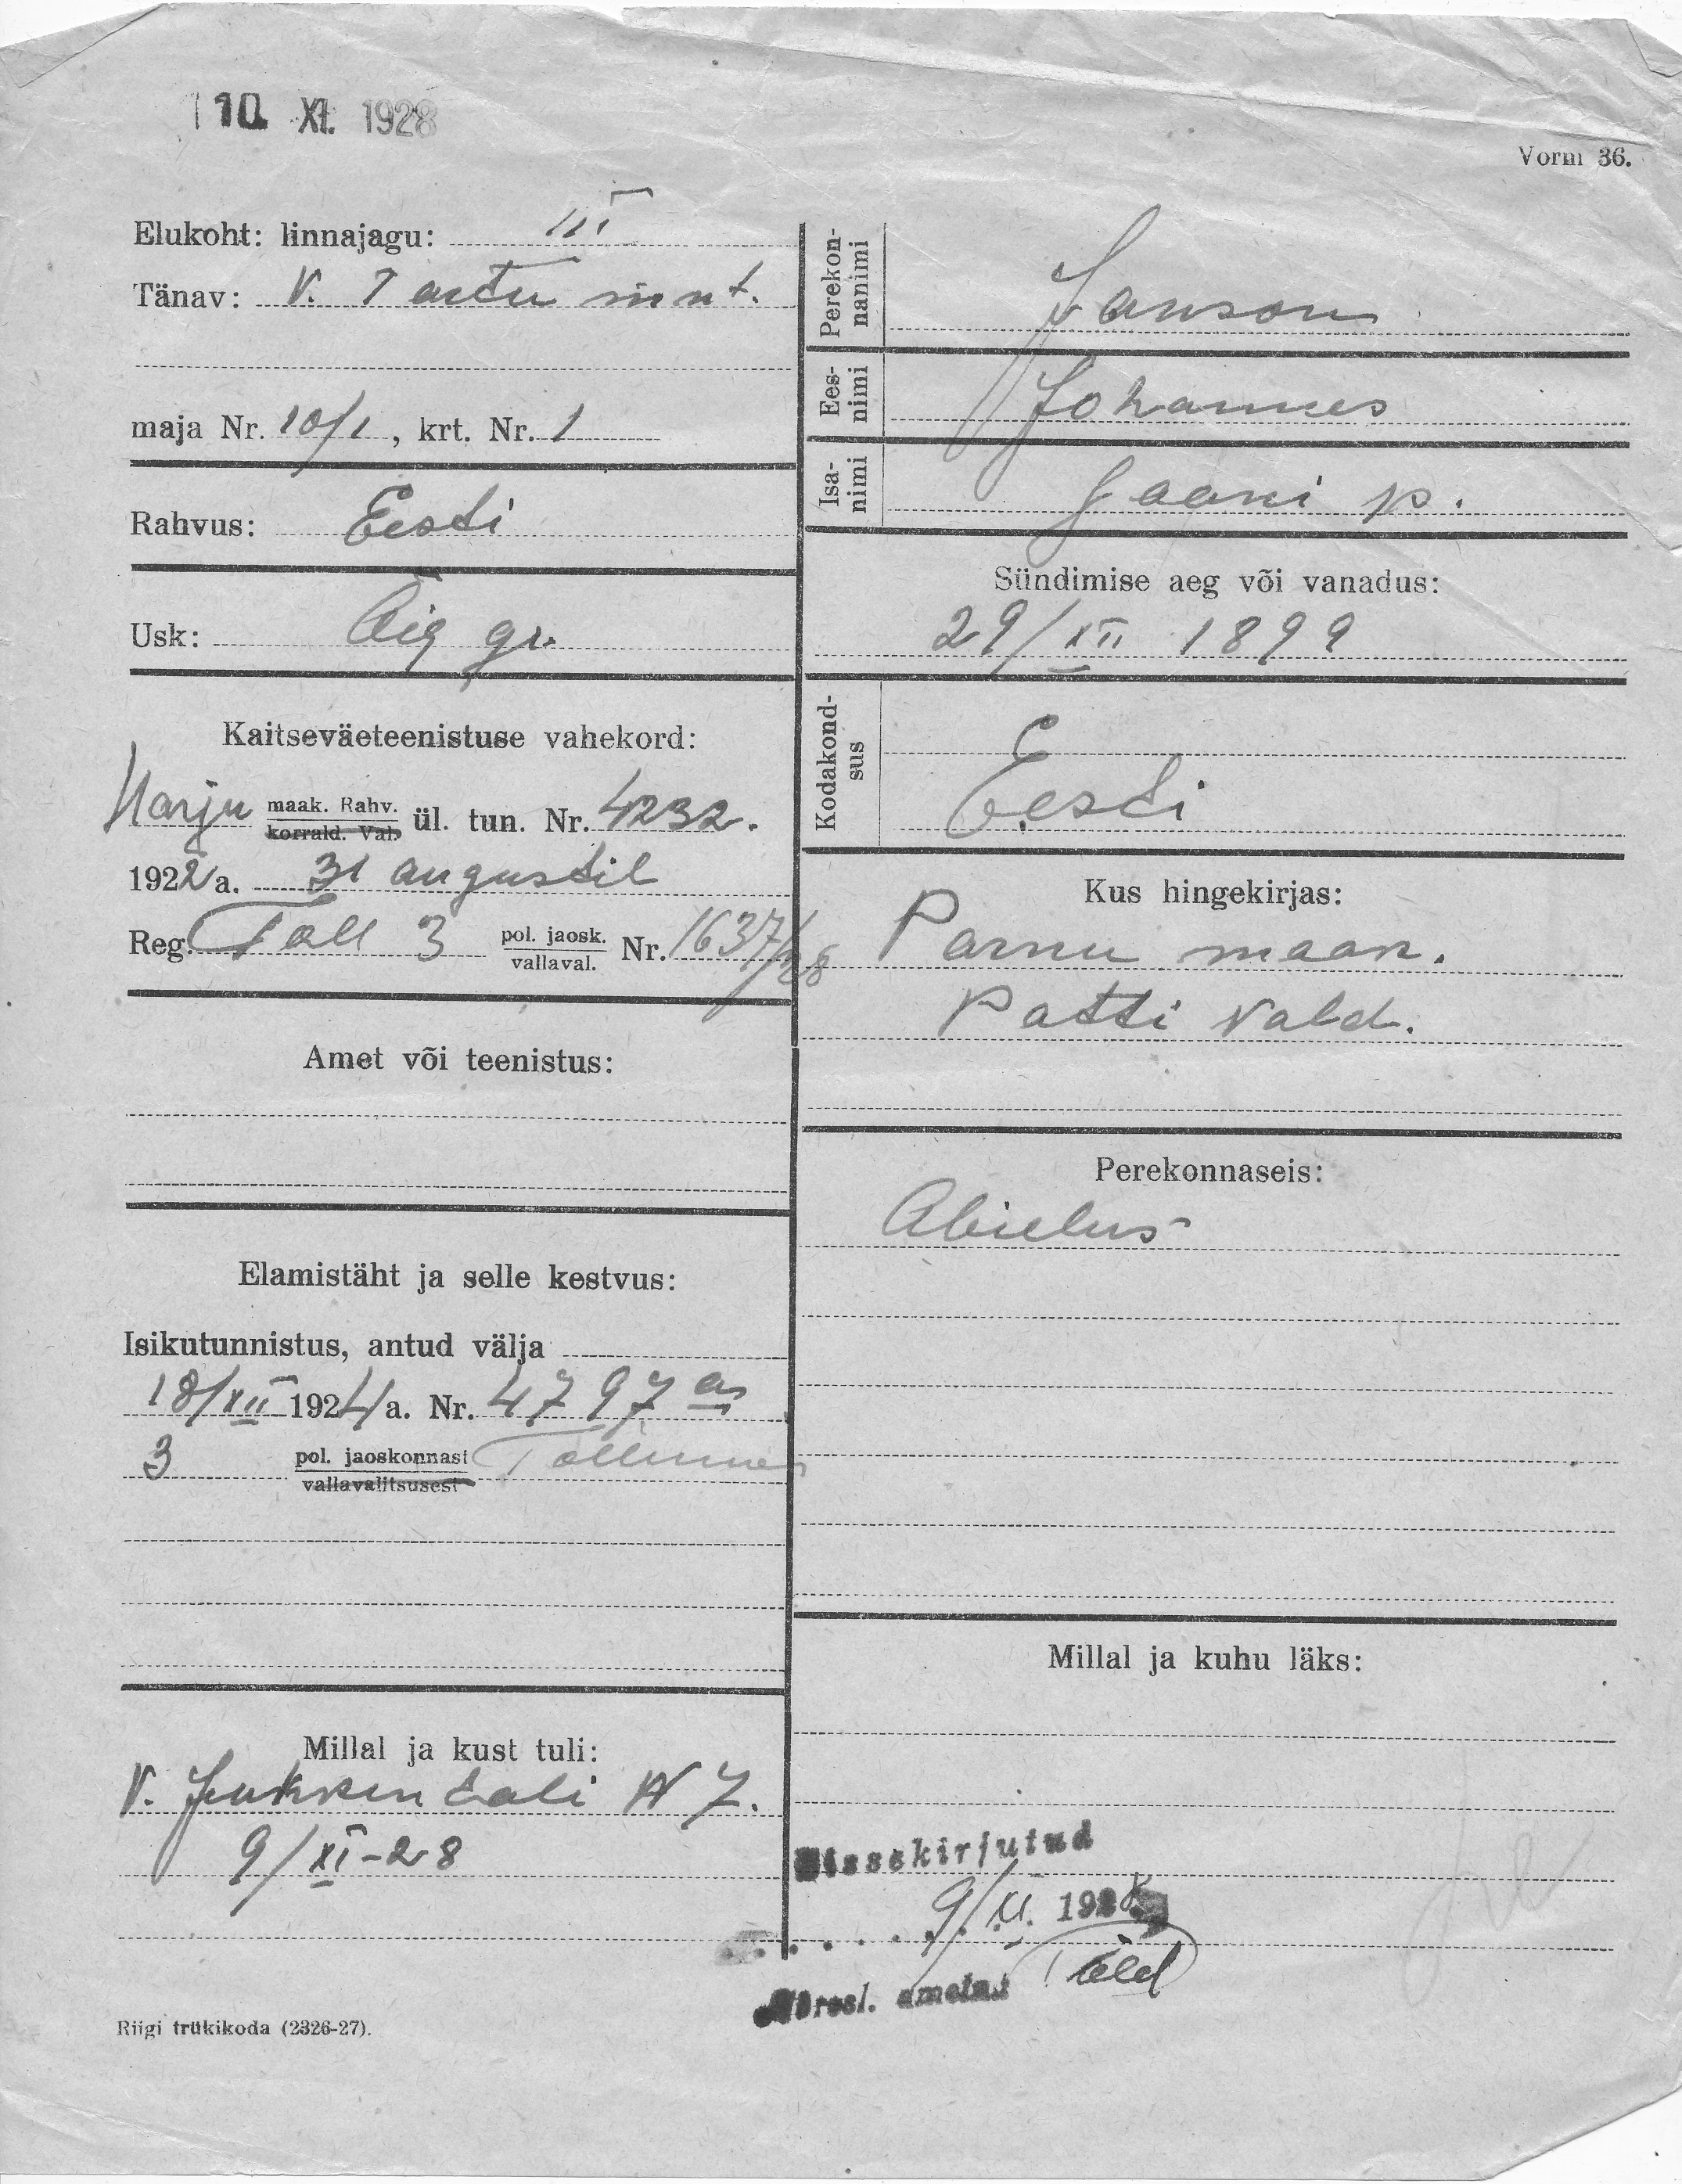 10. XI. 1928
Vorm 36.
Elukoht: linnajagu: III
Tänav: V. Tartu mnt.
maja Nr. 10/1, krt. Nr. 1
Rahvus: Eesti
Usk: Õig gr.
Kaitseväeteenistuse vahekord:
Harju maak. Rahv. korrald. Val. ül. tun. Nr. 4232.
1922 a. 31 augustil
Reg. Tall 3 pol. jaosk. vallaval. Nr. 1637/28
Amet või teenistus:
Elamistäht ja selle kestvus:
Isikutunnistus, antud välja
18/XII 1924 a. Nr. 4797 a
3 pol. jaoskonnast vallavalitsusest Tallinnas
Millal ja kust tuli:
V. Juhkentali N 7.
9/XI-28
Riigi trükikoda (2326-27).
Perekon-
nanimi
Janson
Ees-
nimi
Johannes
Isa-
nimi
Jaani p.
Sündimise aeg või vanadus:
29/XII 1899
Kodakond-
sus
Eesti
Kus hingekirjas:
Pärnu maak.
Patti vald.
Perekonnaseis:
Abielus
Millal ja kuhu läks:
Sissekirjutud
9/XI. 1928
Adresl. ametnik